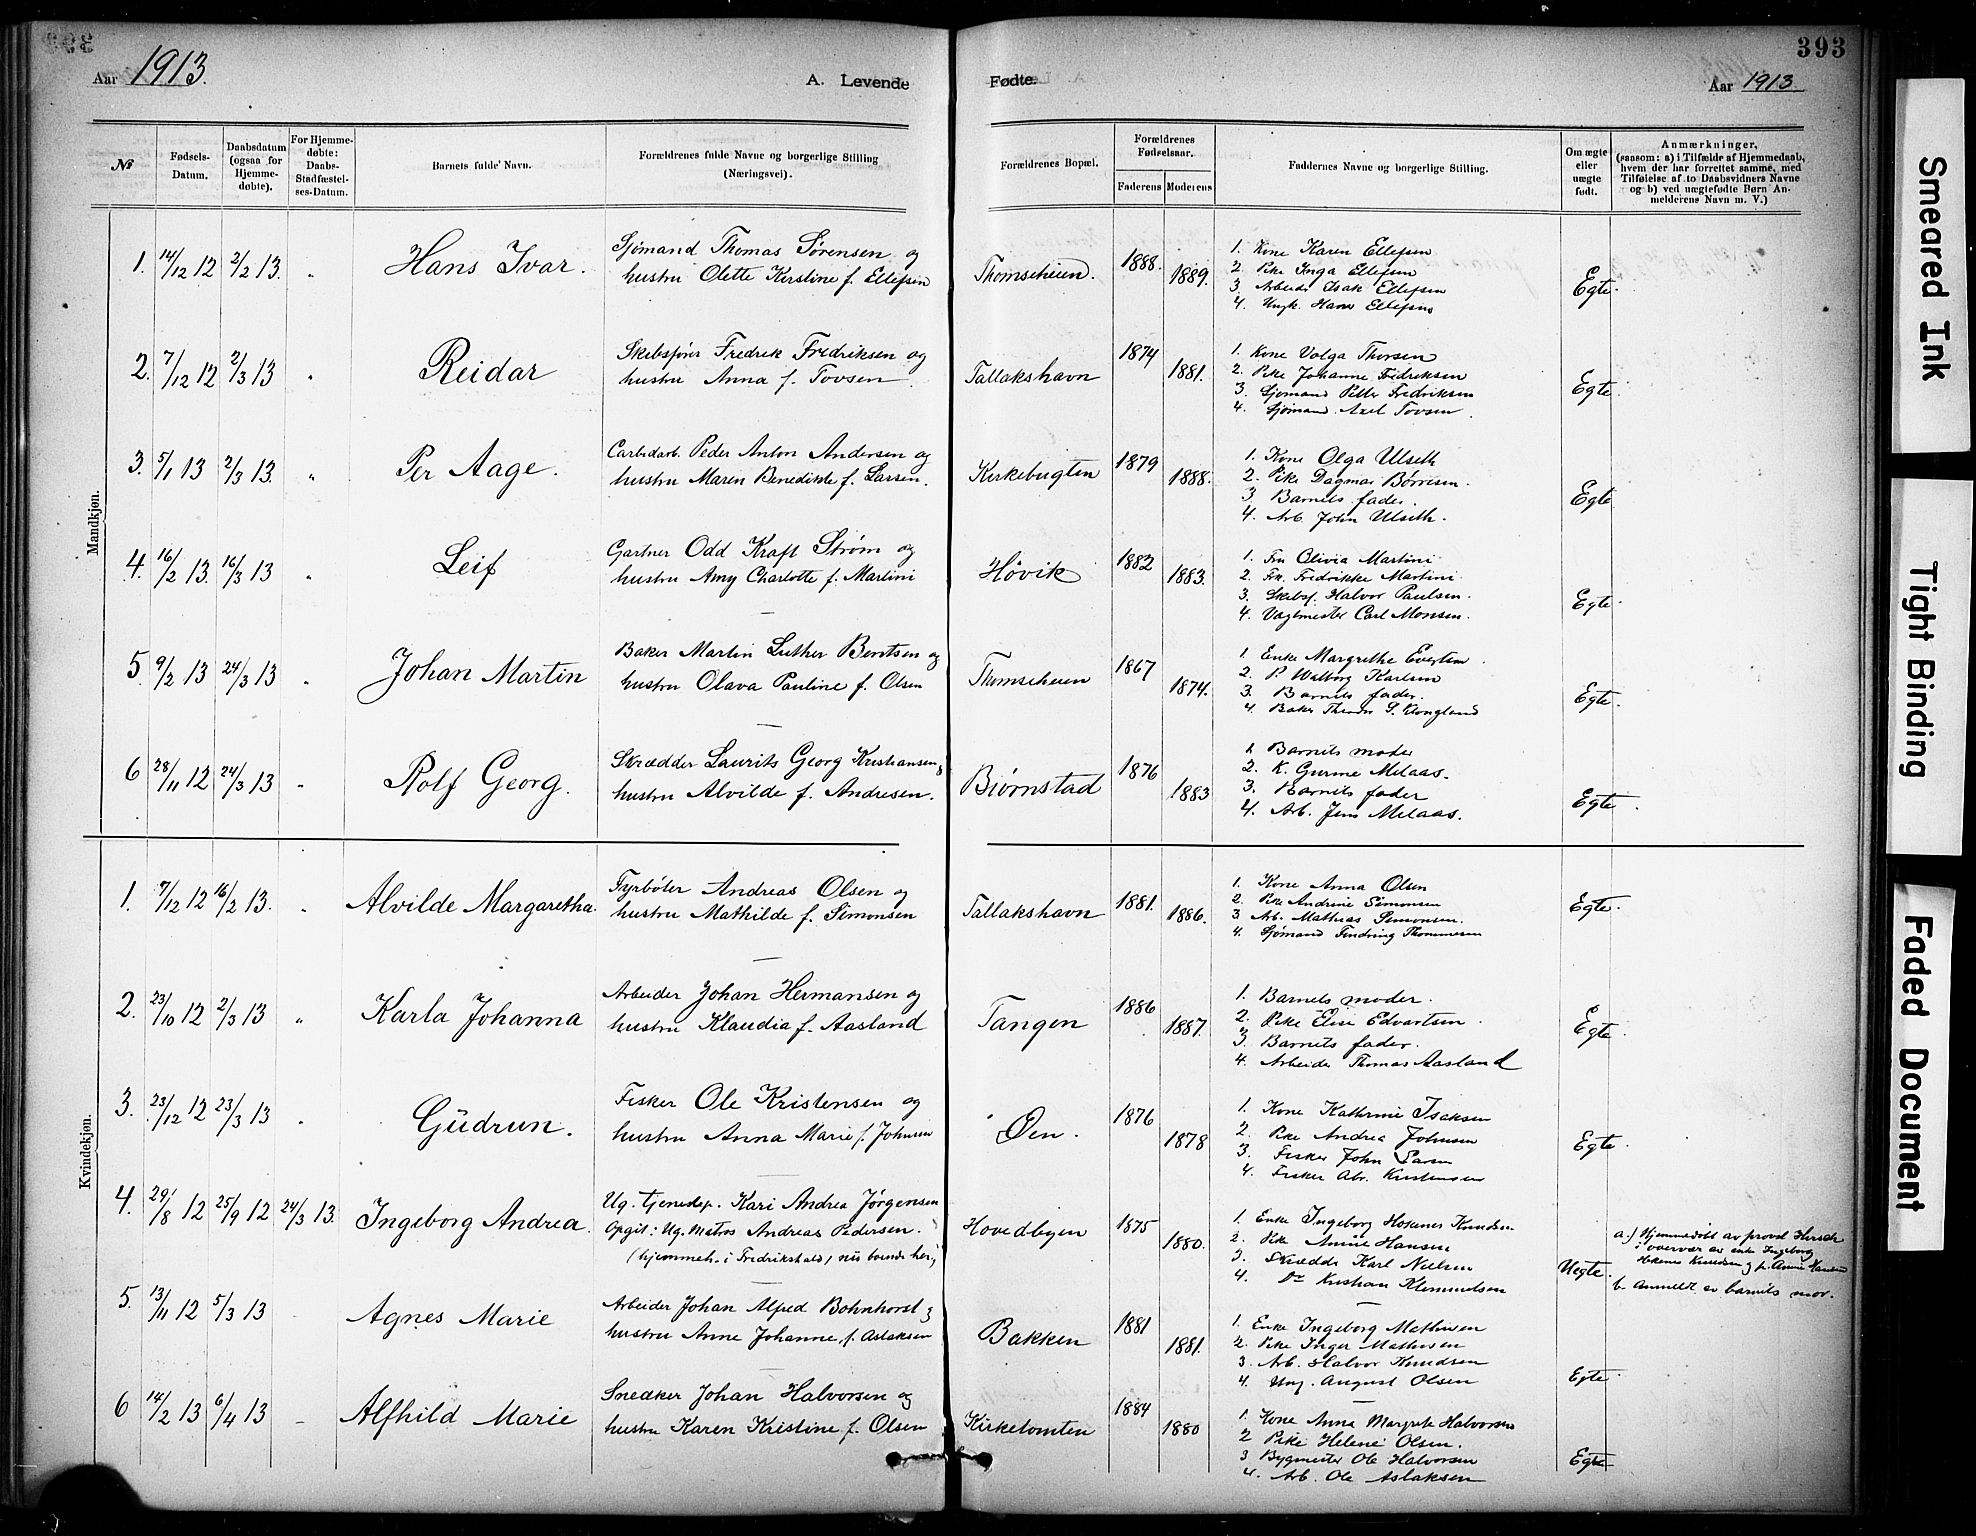 393
Aar 1913.
A. Levende
Fødte.
Aar 1913.
№
Fødsels-Datum.
Daabsdatum (ogsaa for Hjemme-døbte).
For Hjemme-døbte: Daabs-Stadfæstel-ses-Datum.
Barnets fulde Navn.
Forældrenes fulde Navne og borgerlige Stilling (Næringsvei).
Forældrenes Bopæl.
Forældrenes Fødselsaar.
Faderens Moderens
Faddernes Navne og borgerlige Stilling.
Om ægte eller uægte født.
Anmærkninger,
(saasom: a) i Tilfælde af Hjemmedaab, hvem der har forrettet samme, med Tilføielse af to Daabsvidners Navne og b) ved uægtefødte Børn An-melderens Navn m. V.)
Mandkjøn.
1. 14/12 12 2/2 13. " Hans Ivar.
Sjømand Thomas Sørensen og
hustru Olette Kirstine f. Ellefsen
Thomseheien. 1888. 1889.
1. Kone Karen Ellefsen
2. Pike Inga Ellefsen
3. Arbeider Isak Ellefsen
4. Ungk. Hans Ellefsen
Egte.
2. 7/12 12 2/3 13 " Reidar
Skibsfører Fredrik Fredriksen og
hustru Anna f. Tovsen.
Tallakshavn 1874 1881.
1. Kone Valga Thorsen
2. Pike Johanne Fredriksen
3. Sjømand Peter Fredriksen
4. Sjømand Axel Tovsen.
Egte.
3. 5/1 13 2/3 13. " Per Aage.
Carbidarb. Peder Anton Andersen og
hustru Maren Benedikte f. Larsen.
Kirkebugten 1879 1888.
1. Kone Olga Ulseth
2. Pike Dagmar Børresen.
3. Barnets fader.
4. Arb. John Ulseth.
Egte
4. 16/2 13. 16/3 13 " Leif
Gartner Odd Kraft Strøm og
hustru Amy Charlotte f. Martini
Høvik 1882 1883.
1. Fru Olivia Martini
2. Frk. Fredrikke Martini.
3. Skibsf. Halvor Paulsen.
4. Vagtmester Carl Monsen.
Egte.
5. 9/2 13 24/3 13 " Johan Martin
Baker Martin Luther Bentsen og
hustru Olava Pauline f. Olsen
Thomseheien 1867 1874.
1. Enke Margrethe Evertsen.
2. P. Walborg Karlsen
3. Barnets fader.
4. Baker Theodor S. Klongland
Egte.
6 28/11 12 24/3 13 " Rolf Georg.
Skrædder Laurits Georg Kristiansen og
hustru Alvilde f. Andresen.
Biørnstad 1876 1883
1. Barnets moder
2. K. Gurine Melaas.
3. Barnets fader
4. Arb. Jens Melaas.
Egte.
Kvindekjøn.
1. 7/12 12 16/2 13. " Alvilde Margaretha.
Fyrbøter Andreas Olsen og
hustru Mathilde f. Simonsen
Tallakshavn 1881. 1886.
1. Kone Anna Olsen
2. Pike Andrine Simonsen
3. Arb. Mathias Simonsen.
4. Sjømand Tendring Thommesen
Egte.
2. 23/10 12 2/3 13 " Karla Johanna
Arbeider Johan Hermansen og
hustru Klaudia f. Aasland
Tangen 1886 1887.
1. Barnets moder.
2. Pike Elise Edvartsen.
3. Barnets fader.
4. Arbeider Thomas Aasland
Egte.
3. 23/12 12 23/3 13 " Gudrun.
Fisker Ole Kristensen og
hustru Anna Marie f. Johnsen
Øen. 1876 1878
1. Kone Kathrine Isaksen
2. Pike Andrea Johnsen
3. Fisker John
4. Fisker Abr. Kristensen
Egte.
4. 29/8 12 25/9 12 24/3 13. Ingeborg Andrea.
Ug. tjenestep. Kari Andrea Jørgensen
Opgit: Ug. Matros Andreas Pedersen.
(hjemmeh. i Fredrikshald, nu boende her)
Hovedbyen 1875 1880.
1. Enke Ingeborg Hokenes Knudsen
2. Pike Annie Hansen
3. Skrædder Karl Nielsen
4. Do Kristian Klemmetsen
Uegte.
a.) Hjemmedøbt av provst Hirsch
i overvær av enke Ingeborg
Hokenes Knudsen og p. Annie Hansen
b. Anmeldt av barnets mor.
5. 13/11 12 5/3 13 Agnes Marie
Arbeider Johan Alfred Bohnhorst og
hustru Anne Johanne f. Aslaksen
Bakken 1881 1881.
1. Enke Ingeborg Mathisen
2. Pike Inger Mathisen
3. Arb. Halvor Knudsen
4. Ung. August Olsen
Egte
6 14/2 13 6/4 13 Alfhild Marie
Snedker Johan Halvorsen og
hustru Karen Kristine f. Olsen
Kirketomten 1884 1880
1. Kone Anna Margrete Halvorsen
2 Pike Helene Olsen.
3 Bygmester Ole Halvorsen
4. Arb. Ole Aslaksen
Egte
Smeared Ink
Tight Binding
Faded Document